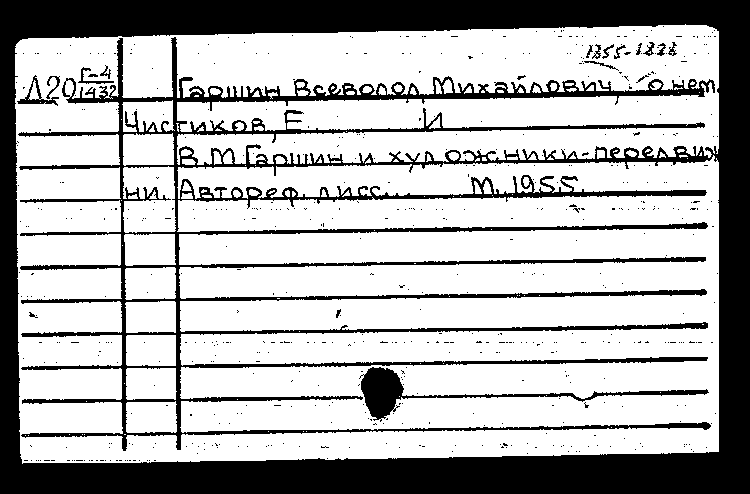 1855-1888
Л20 Г-4/1432 Гаршин, Всеволод Михайлович, о нем.
Чистиков, Е. И
В.М Гаршин и художники-передвиж
ни. Автореф. дисс... М., 1955.